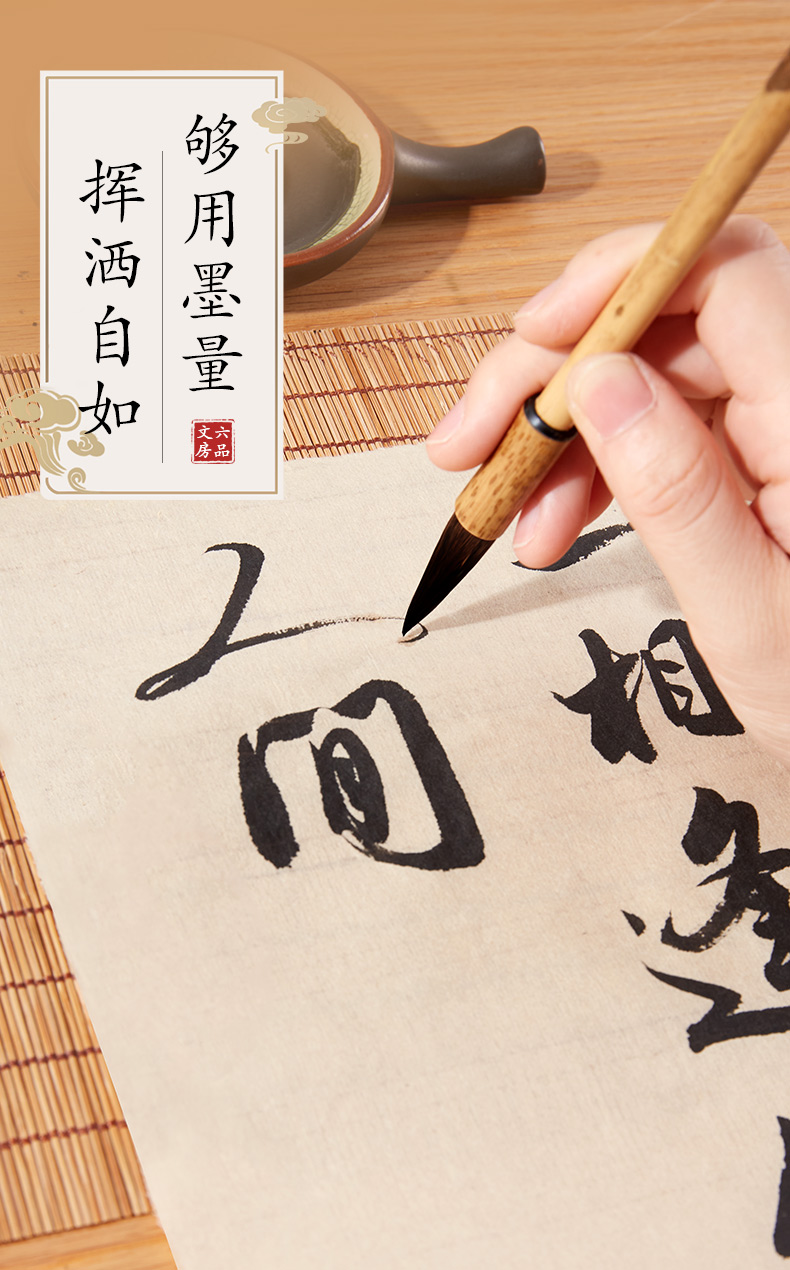 够用墨量
挥洒自如
六品
文房
相逢
间